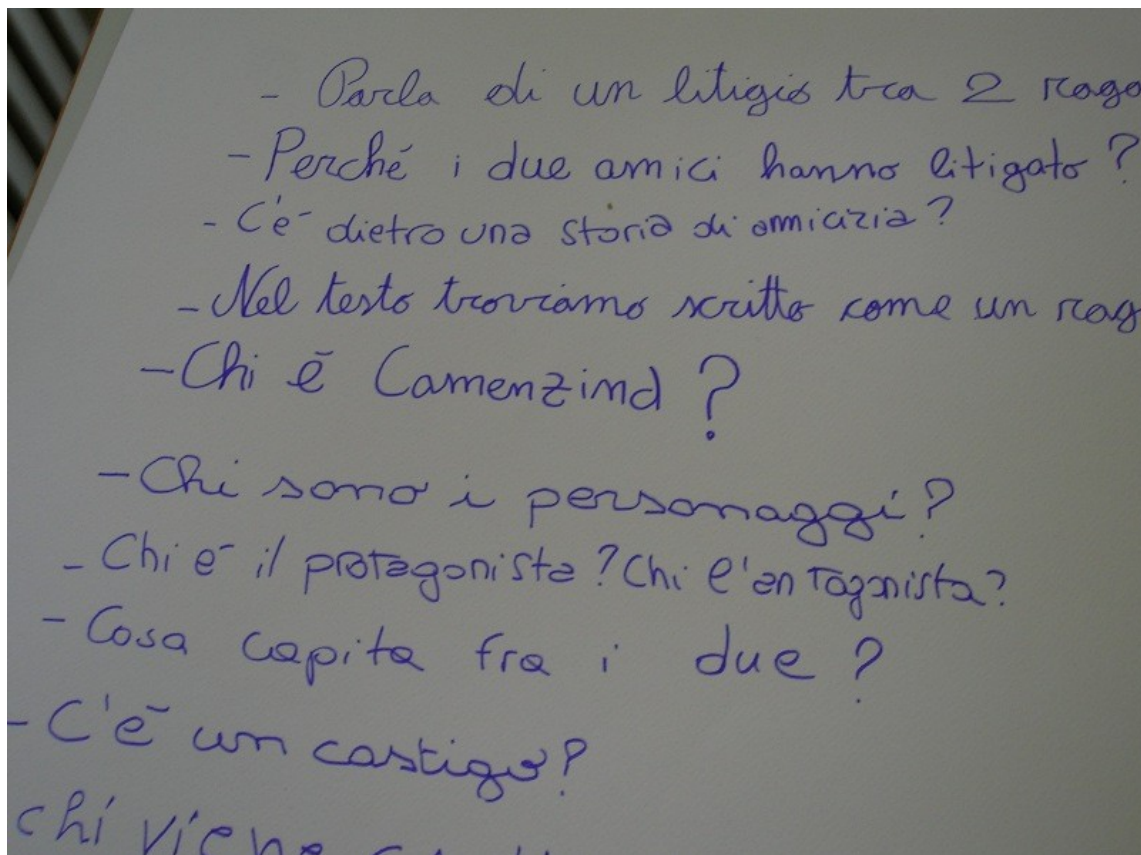 - Parla di un litigio tra 2 raga
- Perché i due amici hanno litigato?
- C'è dietro una storia di amicizia?
- Nel testo troviamo scritto come un rag
- Chi è Camenzind?
- Chi sono i personaggi?
- Chi è il protagonista? Chi l'antagonista?
- Cosa capita fra i due?
- C'è un castigo?
chi viene